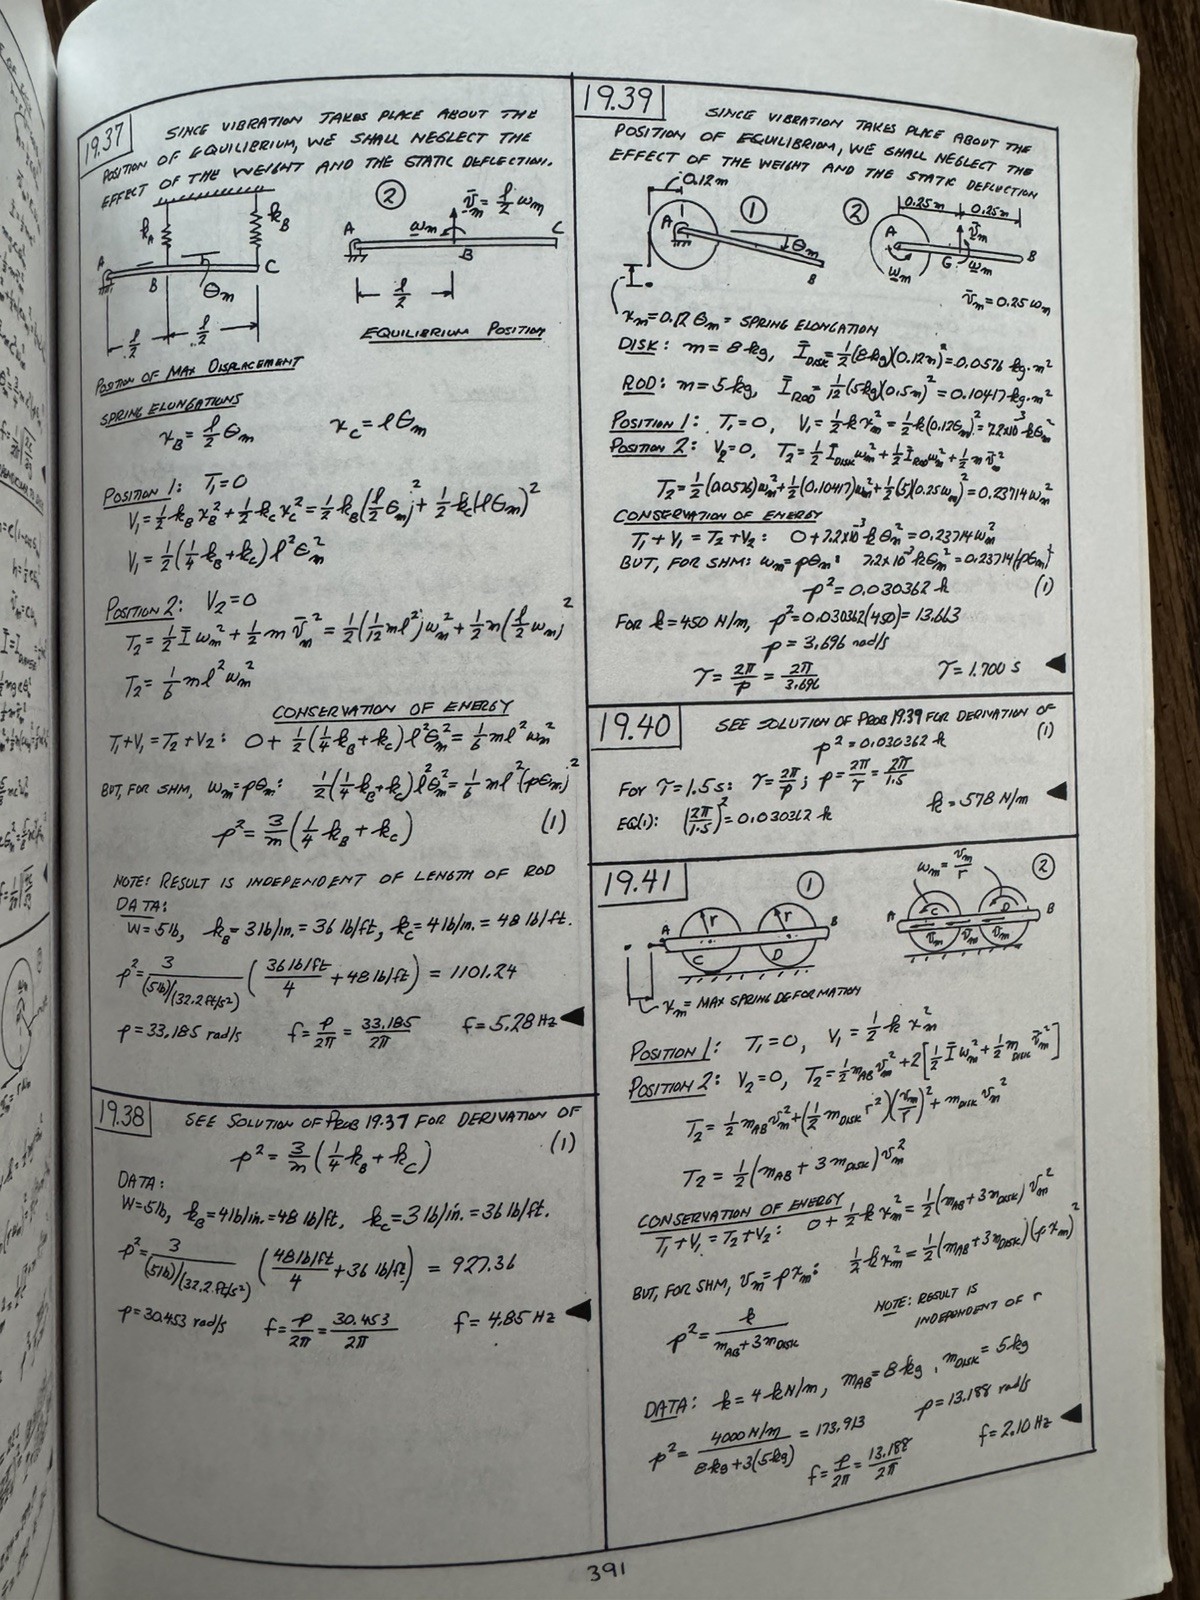 19.37
SINCE VIBRATION TAKES PLACE ABOUT THE
POSITION OF EQUILIBRIUM, WE SHALL NEGLECT THE
EFFECT OF THE WEIGHT AND THE STATIC DEFLECTION.
k_A k_B
A B C θm
l/2 l/2
② v̄m = l/2 ωm
A ωm B C
l/2
EQUILIBRIUM POSITION
POSITION OF MAX DISPLACEMENT
SPRING ELONGATIONS
x_B = l/2 θm x_C = l θm
POSITION 1: T₁ = 0
V₁ = ½ k_B x_B² + ½ k_C x_C² = ½ k_B (l/2 θm)² + ½ k_C (l θm)²
V₁ = ½ (¼ k_B + k_C) l² θm²
POSITION 2: V₂ = 0
T₂ = ½ Ī ωm² + ½ m v̄m² = ½ (1/12 ml²) ωm² + ½ m (l/2 ωm)²
T₂ = 1/6 ml² ωm²
CONSERVATION OF ENERGY
T₁ + V₁ = T₂ + V₂: 0 + ½ (¼ k_B + k_C) l² θm² = 1/6 ml² ωm²
BUT, FOR SHM, ωm = pθm: ½ (¼ k_B + k_C) l² θm² = 1/6 ml² (pθm)²
p² = 3/m (¼ k_B + k_C) (1)
NOTE: RESULT IS INDEPENDENT OF LENGTH OF ROD
DATA:
W = 5 lb, k_B = 3 lb/in. = 36 lb/ft, k_C = 4 lb/in. = 48 lb/ft.
p² = 3/((5 lb)/(32.2 ft/s²)) (36 lb/ft/4 + 48 lb/ft) = 1101.24
p = 33.185 rad/s f = p/2π = 33.185/2π f = 5.28 Hz ◀
19.38
SEE SOLUTION OF PROB 19.37 FOR DERIVATION OF
p² = 3/m (¼ k_B + k_C) (1)
DATA:
W = 5 lb, k_B = 4 lb/in. = 48 lb/ft, k_C = 3 lb/in. = 36 lb/ft.
p² = 3/((5 lb)/(32.2 ft/s²)) (48 lb/ft/4 + 36 lb/ft) = 927.36
p = 30.453 rad/s f = p/2π = 30.453/2π f = 4.85 Hz ◀
19.39
SINCE VIBRATION TAKES PLACE ABOUT THE
POSITION OF EQUILIBRIUM, WE SHALL NEGLECT THE
EFFECT OF THE WEIGHT AND THE STATIC DEFLECTION
0.12m
A ① θm B
② 0.25m 0.25m
A v̄m G B
ωm ωm
v̄m = 0.25 ωm
xm = 0.12 θm = SPRING ELONGATION
DISK: m = 8 kg, Ī_DISK = ½ (8 kg)(0.12m)² = 0.0576 kg·m²
ROD: m = 5 kg, Ī_ROD = 1/12 (5 kg)(0.5m)² = 0.10417 kg·m²
POSITION 1: T₁ = 0, V₁ = ½ k xm² = ½ k (0.12θm)² = 7.2x10⁻³ kθm²
POSITION 2: V₂ = 0, T₂ = ½ Ī_DISK ωm² + ½ Ī_ROD ωm² + ½ m v̄m²
T₂ = ½ (0.0576) ωm² + ½ (0.10417) ωm² + ½ (5)(0.25 ωm)² = 0.23714 ωm²
CONSERVATION OF ENERGY
T₁ + V₁ = T₂ + V₂: 0 + 7.2x10⁻³ k θm² = 0.23714 ωm²
BUT, FOR SHM: ωm = pθm: 7.2x10⁻³ kθm² = 0.23714 (pθm)²
p² = 0.030362 k (1)
FOR k = 450 N/m, p² = 0.030362 (450) = 13.663
p = 3.696 rad/s
τ = 2π/p = 2π/3.696 τ = 1.700 s ◀
19.40
SEE SOLUTION OF PROB 19.39 FOR DERIVATION OF
p² = 0.030362 k (1)
FOR τ = 1.5 s: τ = 2π/p; p = 2π/τ = 2π/1.5
EQ(1): (2π/1.5)² = 0.030362 k k = 578 N/m ◀
19.41
① A r r B C D
② ωm = vm/r
A C D B
v̄m vm v̄m
xm = MAX SPRING DEFORMATION
POSITION 1: T₁ = 0, V₁ = ½ k xm²
POSITION 2: V₂ = 0, T₂ = ½ m_AB vm² + 2[½ Ī ωm² + ½ m_DISK v̄m²]
T₂ = ½ m_AB vm² + (½ m_DISK r²)(vm/r)² + m_DISK vm²
T₂ = ½ (m_AB + 3 m_DISK) vm²
CONSERVATION OF ENERGY
T₁ + V₁ = T₂ + V₂: 0 + ½ k xm² = ½ (m_AB + 3 m_DISK) vm²
BUT, FOR SHM, vm = p xm: ½ k xm² = ½ (m_AB + 3 m_DISK)(p xm)²
p² = k/(m_AB + 3 m_DISK)
NOTE: RESULT IS
INDEPENDENT OF r
DATA: k = 4 kN/m, m_AB = 8 kg, m_DISK = 5 kg
p² = 4000 N/m/(8 kg + 3(5 kg)) = 173.913 p = 13.188 rad/s
f = p/2π = 13.188/2π f = 2.10 Hz ◀
391